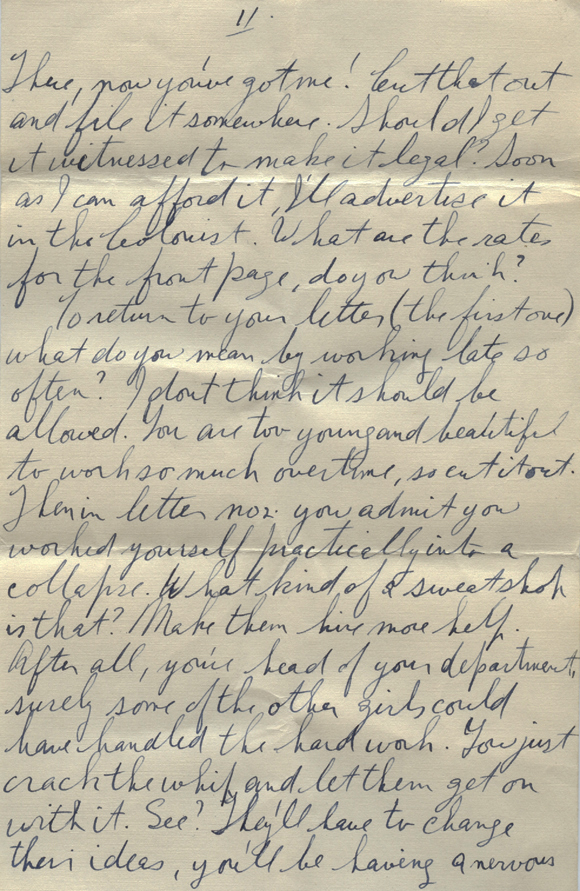 11.
There, now you've got me! Cut that out
and file it somewhere. Should I get
it witnessed to make it legal? Soon
as I can afford it, I'll advertise it
in the Colonist. What are the rates
for the front page, do you think?
To return to your letter (the first one)
what do you mean by working late so
often? I dont think it should be
allowed. You are too young and beautiful
to work so much overtime, so cut it out.
Then in letter no 2. you admit you
worked yourself practically into a
collapse. What kind of a sweatshop
is that? Make them hire more help.
After all, you're head of your department,
surely some of the other girls could
have handled the hard work. You just
crack the whip and let them get on
with it. See? They'll have to change
their ideas, you'll be having a nervous